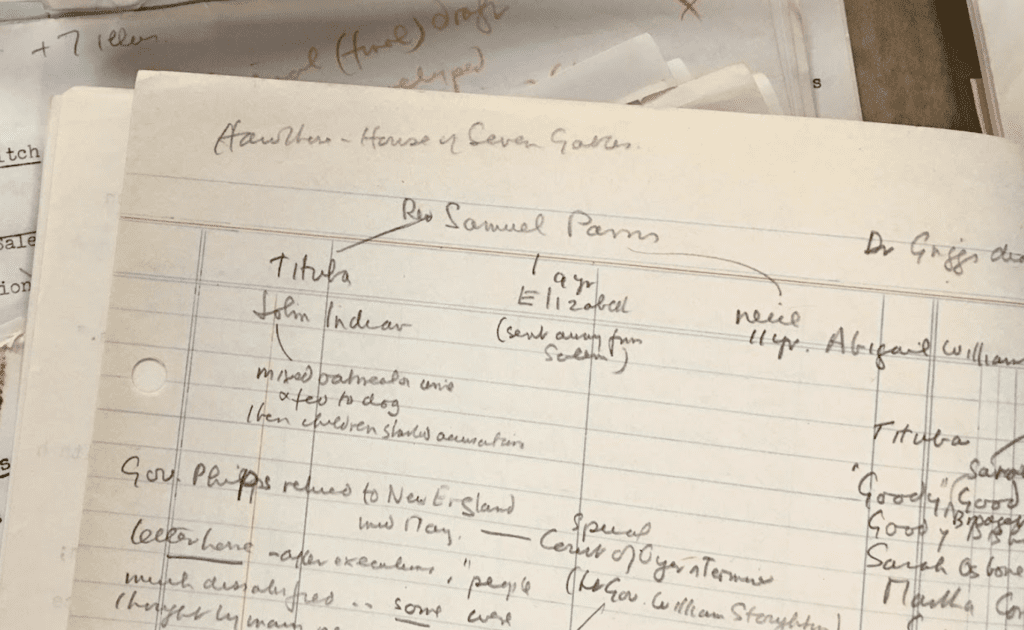 + 7
(final) draft
x
s
itch
Sale
ion)
s
Hawthorne - House of Seven Gables.
Rev Samuel Parris
Dr Griggs
Tituba
John Indian
9 yr
Elizabeth
(sent away from
Salem)
niece
11 yr. Abigail William
mixed oatmeal urine
& fed to dog
then children started accusation
Tituba
Sara
"Goody" Good
Goody
Sarah Osborne
Martha Cor
Gov. Phipps returned to New England
mid May. — Special
Court of Oyer & Terminer
(Lt Gov. William Stoughton)
letter home - after executions, "people
much dissatisfied .. some were
thought by many